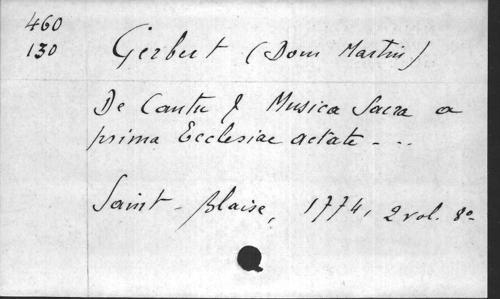 460
130 Gerbert (Dom Martin)
De Cantu & Musica Sacra a
prima Ecclesiae aetate - ..
Saint-Blaise, 1774, 2 vol. 8o-